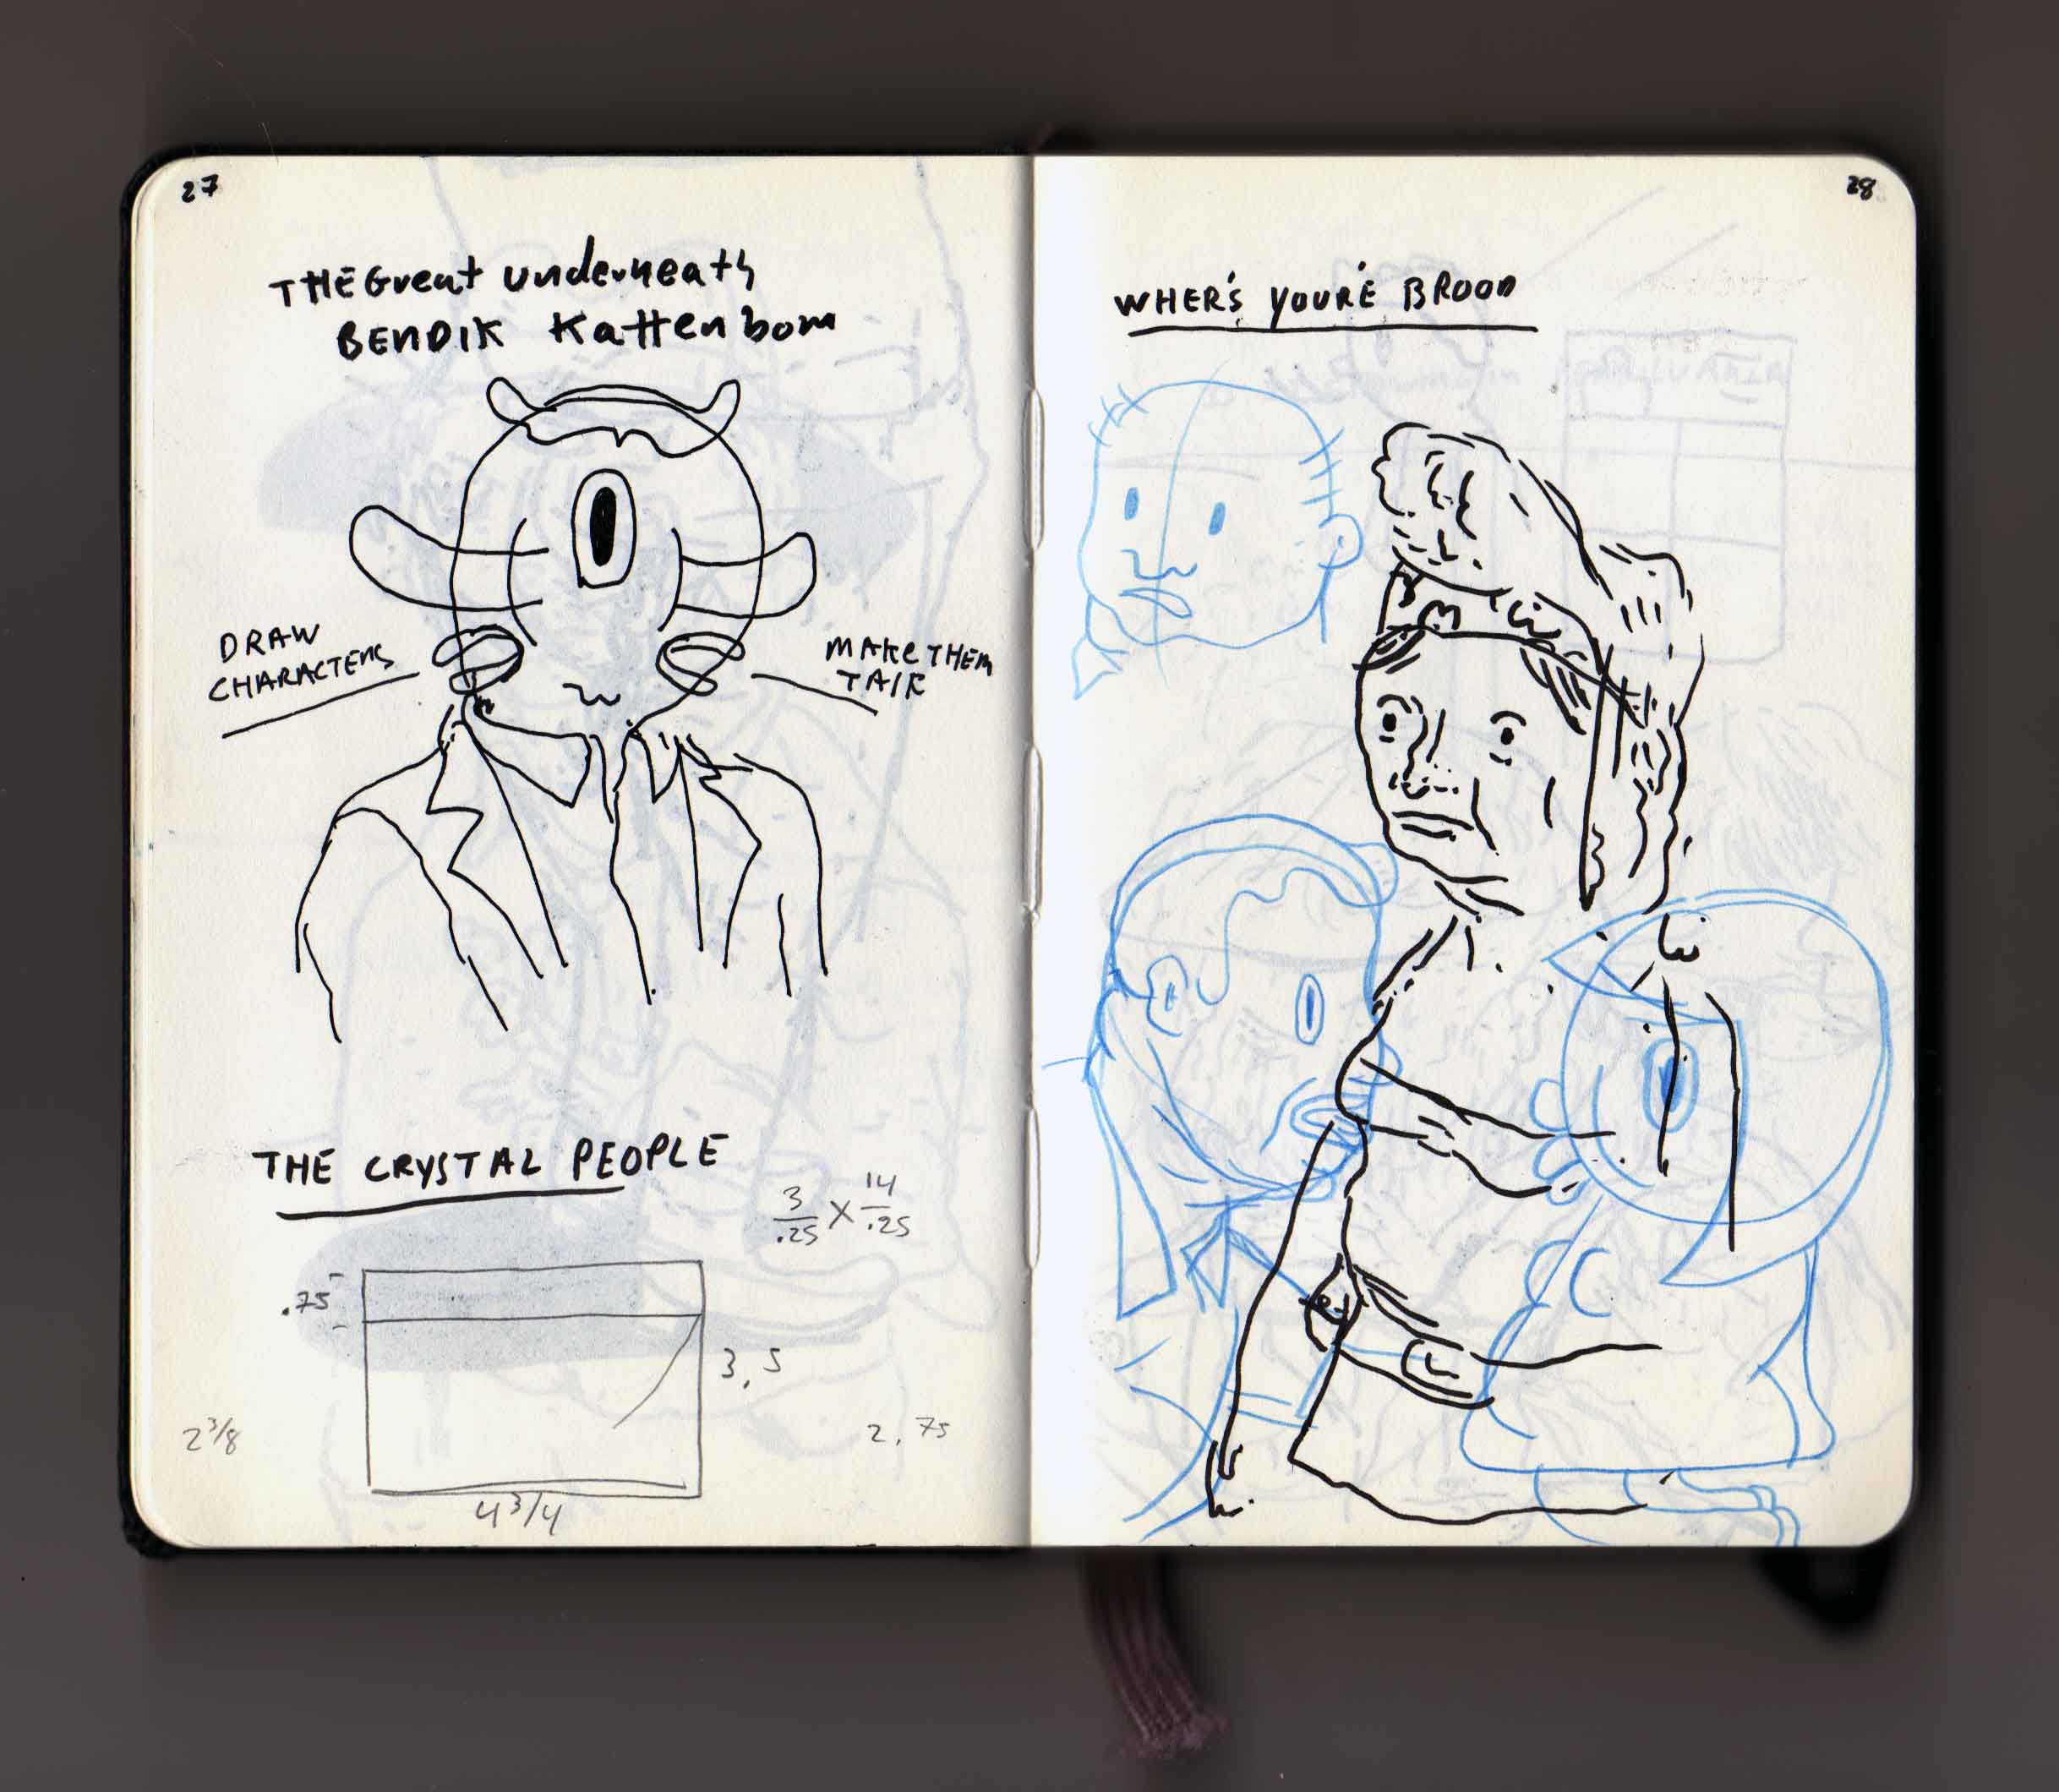 27
THE Great underneath
BENDIK Kattenbom
DRAW
CHARACTERS
MAKE THEM
TALK
THE CRYSTAL PEOPLE
3/.25 X 14/.25
.75
3.5
2 3/8
2.75
4 3/4
28
WHER'S YOUR'E BROOD